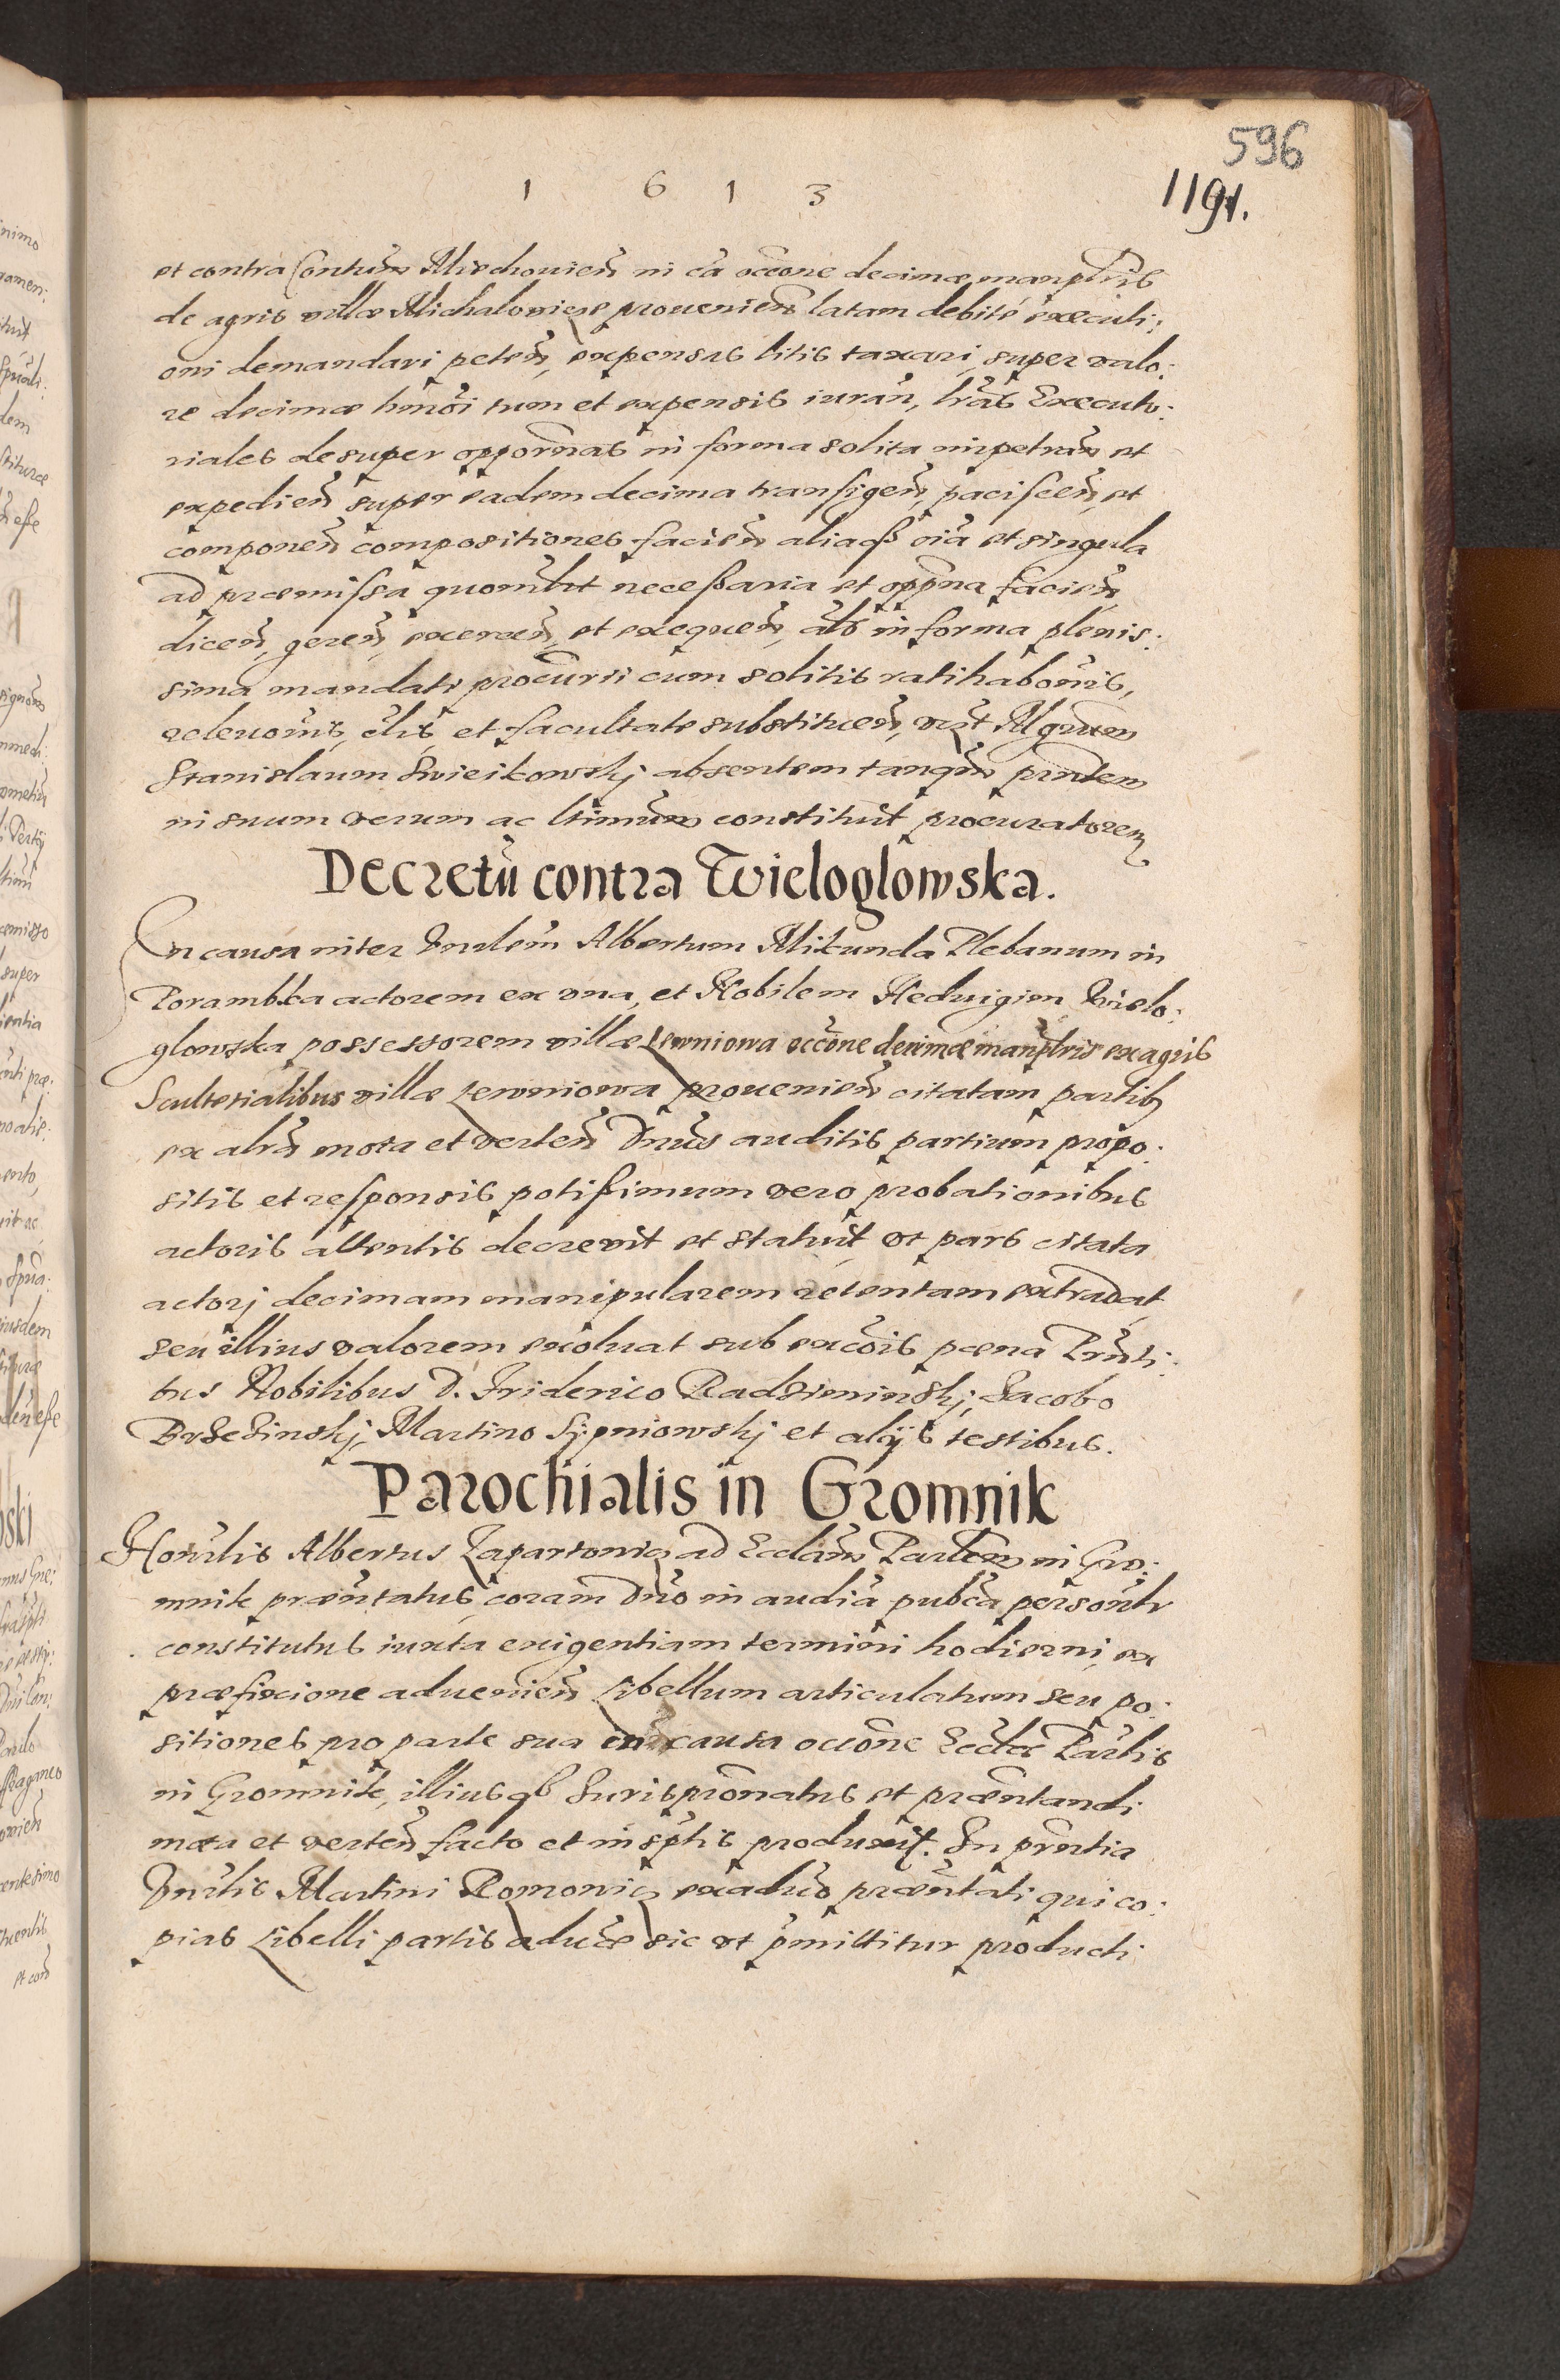 596
1 6 1 3
1191.
et contra Contum̃ Miechouien̄ in cā occōne decimæ manp̄lris
de agris villæ Michalowice prouenien̄ latam debite executi:
oni demandari peten̄, expensas litis taxari, super valo:
re decimæ hm̄oi tum et expensis iuran̄, lrās Executo:
riales desuper opport̄nas in forma solita impetran̄ et
expedien̄ super eadem decima transigen̄, paciscen̄, et
componen̄ compositiones facien̄ aliaq̃ oīa et singula
ad præmissa quomlt̄ necessaria et opp̄na facien̄
dicen̄, geren̄, exercen̄, et exequen̄, als̄ in forma plenis:
sima mandati procūrii cum solitis ratihabōnis,
releuōnis, cl̄is, et facultate substituen̄, vnt̄ Mgrum̄
Stanislaum Swieikowskj absentem tanqm̄ pn̄tem
in suum verum ac ltimum̄ constituit procuratorem
Decretũ contra Wieloglowska.
In causa inter Vnrlem̄ Albertum Mikunda Plebanum in
Porambka actorem ex vna, et Nobilem Hedwigim Wielo:
glowska possessorem villæ Lewniowa occōne decimæ manp̄lris ex agris
Scultetialibus villæ Lewniowa prouenien̄ citatam partib9
ex altrā mota et verten̄ Dnūs auditis partium propo:
sitis et responsis potissimum vero probationibus
actoris attentis decrevit et statuit, vt pars citata
actorj decimam manipularem retentam extradat
seu illius valorem exoluat sub excōis pæna Prn̄ti:
bus Nobilibus D. Friderico Radziminskj, Jacobo
Brzezinskj, Martino Sypniowskj et alijs testibus.
Parochialis in Gromnik
Honrlis Albertus Lapartowicz ad Ecclām Parlem̄ in Gro:
mnik præn̄tatus, coram Dnō in audiā pubcā personlr̄
constitutus iuxta exigentiam termini hodierni, ex
præfixione aduenien̄ Libellum articulatum seu po:
sitiones pro parte sua in causa occōne Ecclæ Parlis
in Gromnik, illiusq3 Iurispron̄atus et præn̄tandi
mota et verten̄ facto et in sptis produxit. In prn̄tia
Vnrlis Martini Romowicz exaduō præn̄tati qui co:
pias Libelli partis aduæ sic vt pmittitur producti